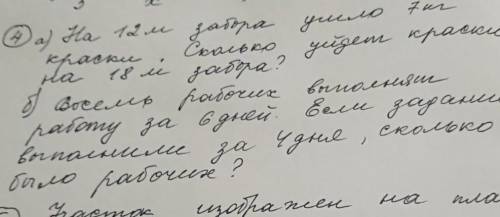 3 х
④ а) На 12 м забора ушло 7 кг
краски. Сколько уйдет краски
на 18 м забора?
б) Восемь рабочих выполнят
работу за 6 дней. Если задание
выполнили за 4 дня, сколько
было рабочих?
Участок изображен на пла